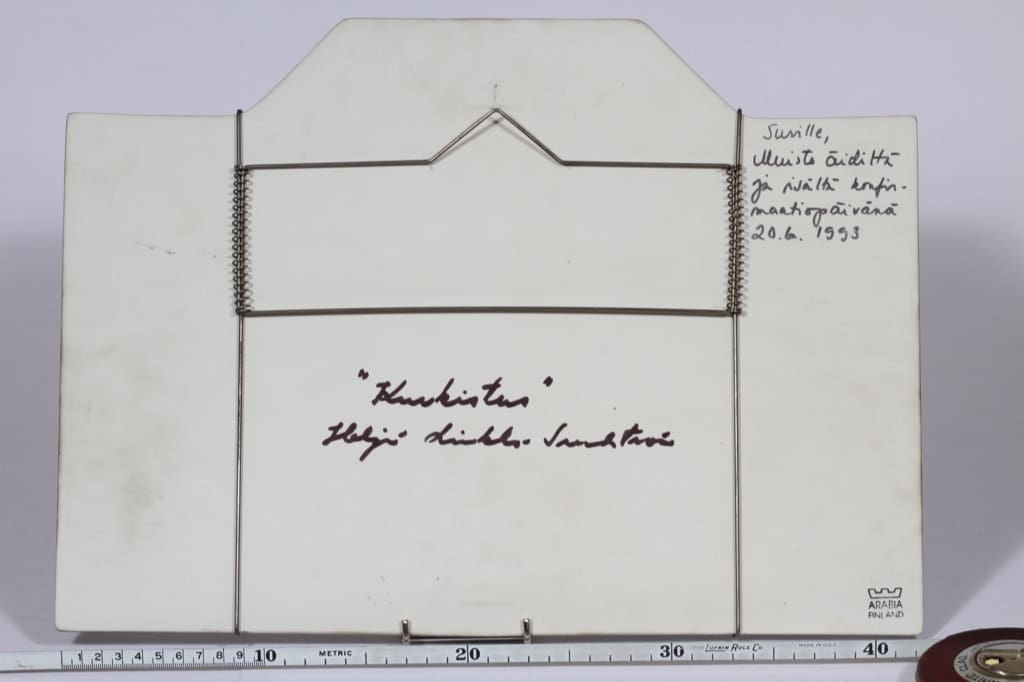 Suville,
Muisto äidiltä
ja isältä konfir-
maatiopäivänä
20.6. 1993
"Kurkistus"
Heljä Liukko-Sundström
ARABIA
FINLAND
1 2 3 4 5 6 7 8 9 10 METRIC 20 30 LUFKIN RULE CO. MADE IN U.S.A. 40